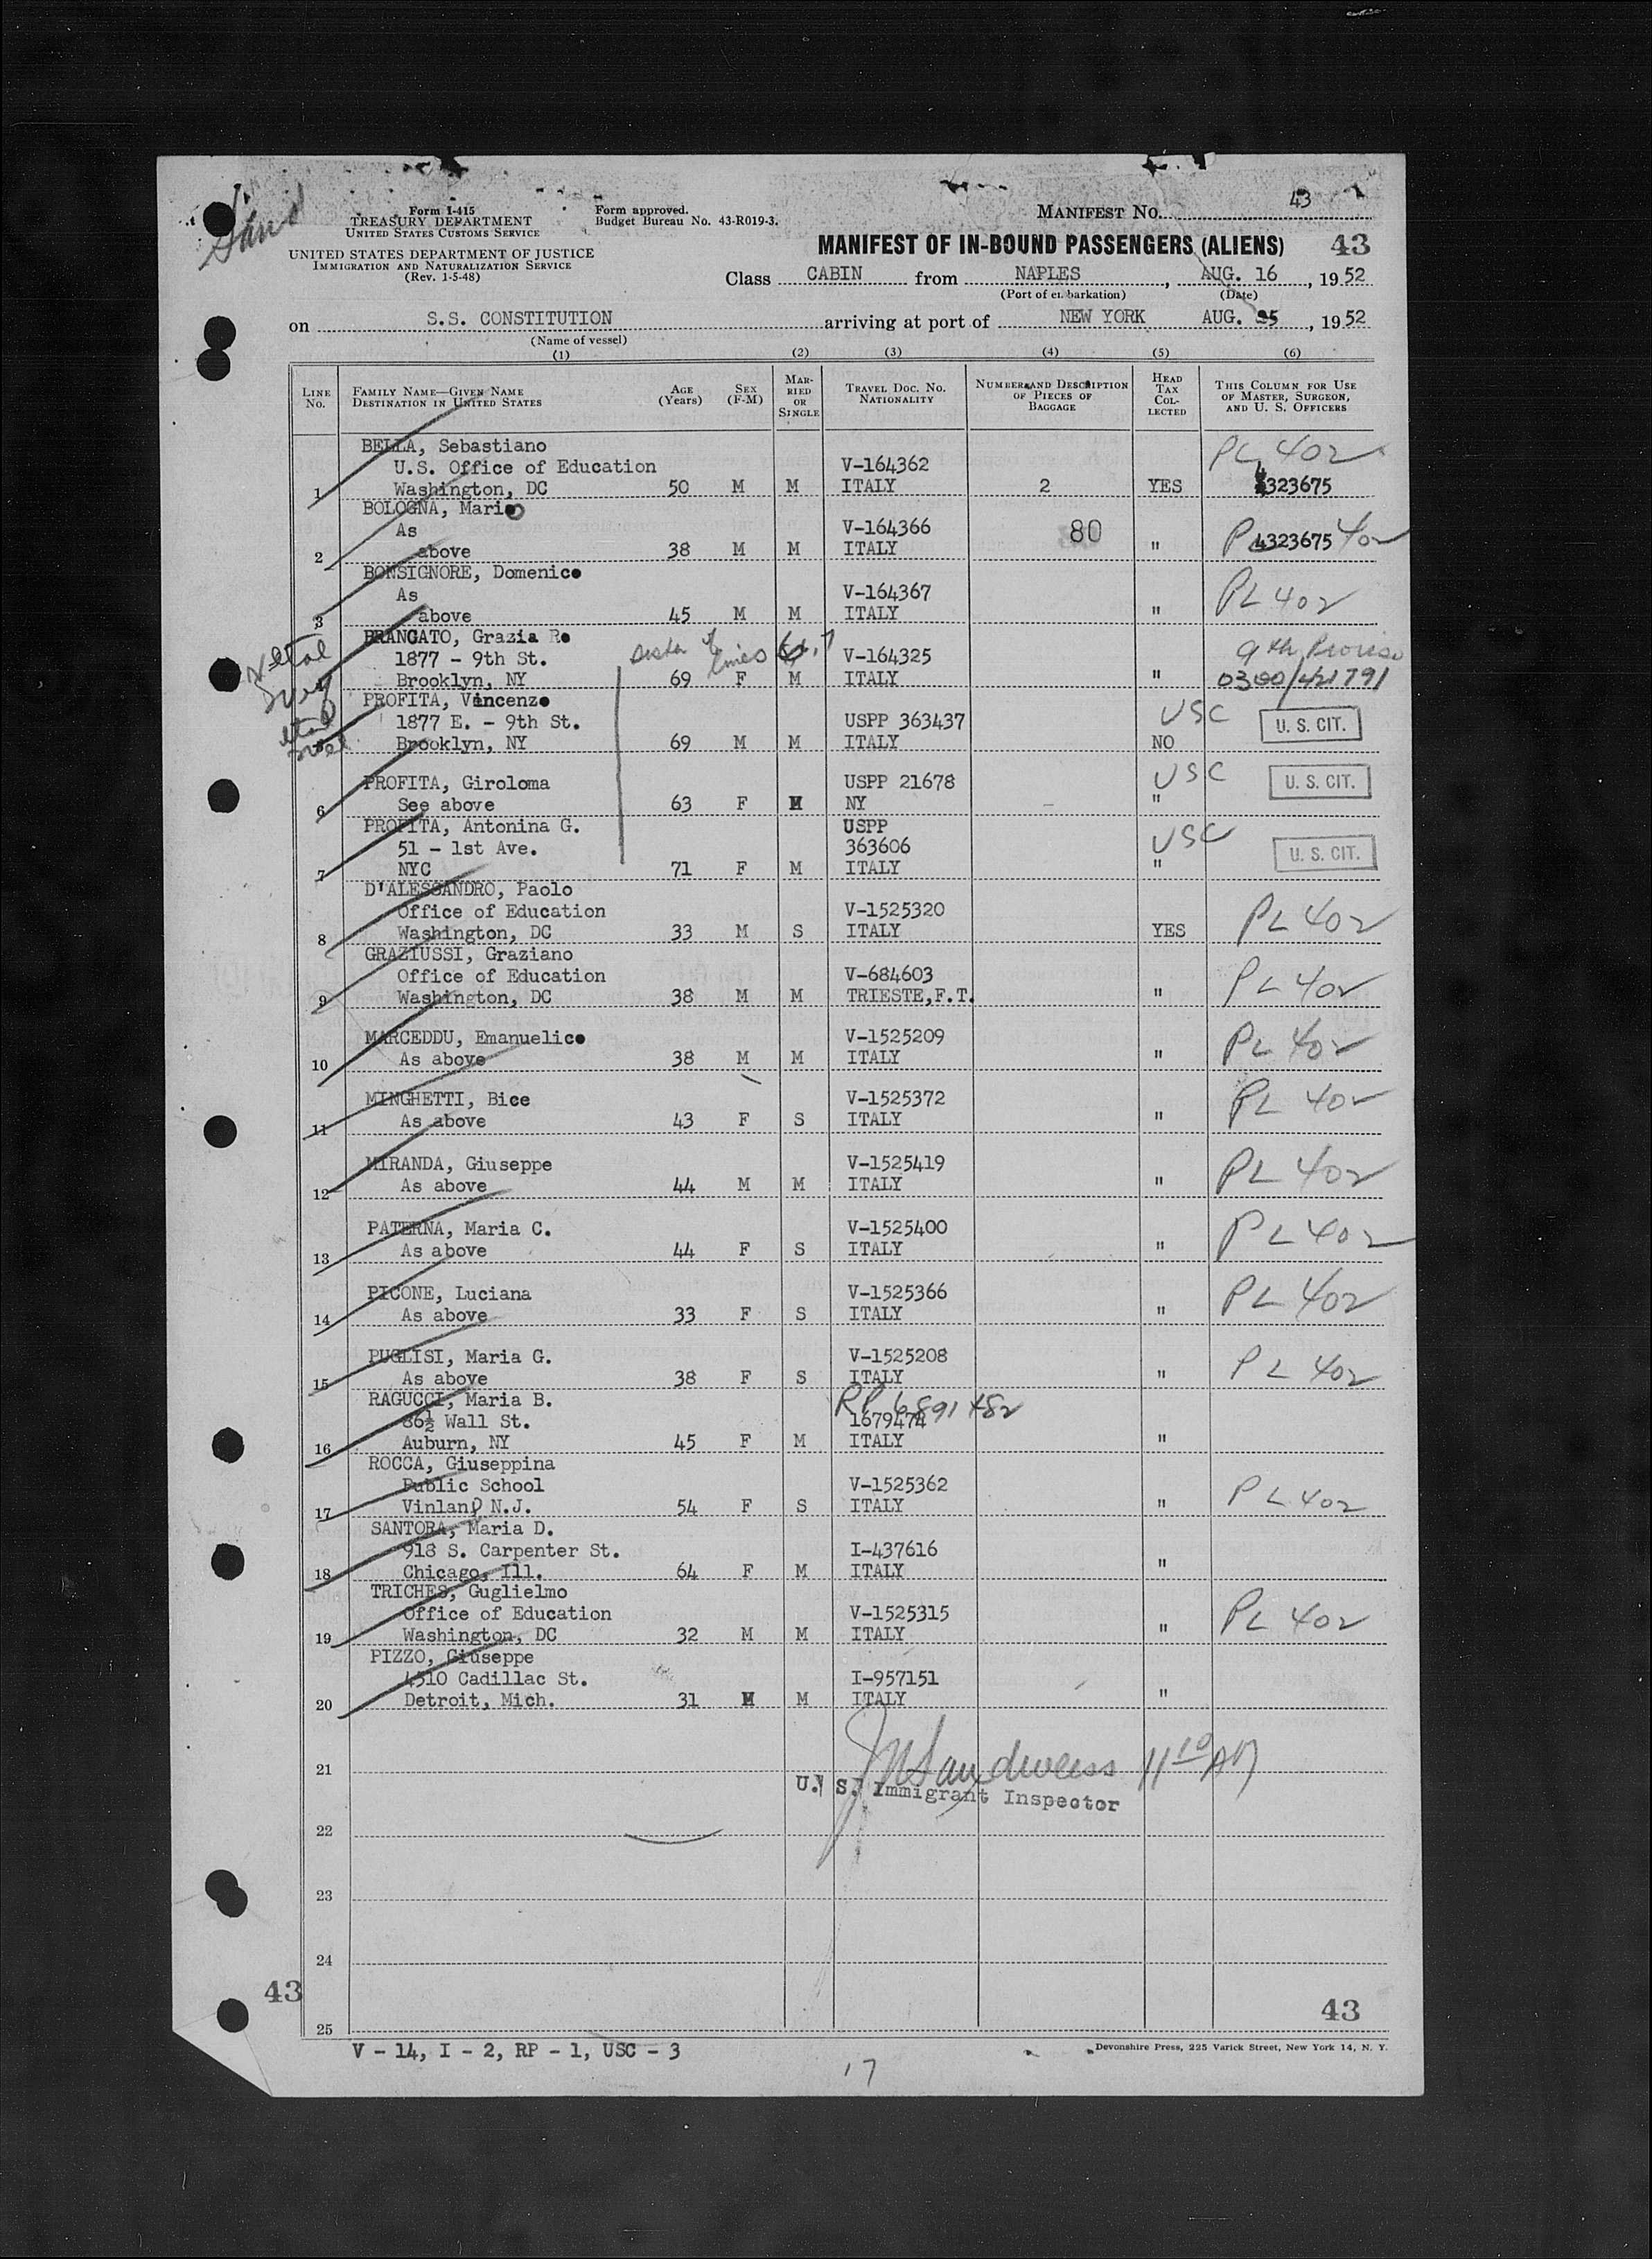 43
Form I-415
TREASURY DEPARTMENT
UNITED STATES CUSTOMS SERVICE
UNITED STATES DEPARTMENT OF JUSTICE
IMMIGRATION AND NATURALIZATION SERVICE
(Rev. 1-5-48)
Form approved.
Budget Bureau No. 43-R019-3.
MANIFEST No. 43
MANIFEST OF IN-BOUND PASSENGERS (ALIENS) 43
Class CABIN from NAPLES, AUG. 16, 1952
(Port of embarkation) (Date)
on S.S. CONSTITUTION arriving at port of NEW YORK AUG. 25, 1952
(Name of vessel)
(1) (2) (3) (4) (5) (6)
LINE No. FAMILY NAME—GIVEN NAME DESTINATION IN UNITED STATES AGE (Years) SEX (F-M) MARRIED OR SINGLE TRAVEL DOC. NO. NATIONALITY NUMBER AND DESCRIPTION OF PIECES OF BAGGAGE HEAD TAX COLLECTED THIS COLUMN FOR USE OF MASTER, SURGEON, AND U. S. OFFICERS
BELLA, Sebastiano PL 402
U.S. Office of Education V-164362
1 Washington, DC 50 M M ITALY 2 YES 4323675
BOLOGNA, Mario
As V-164366 80 PL 402
2 above 38 M M ITALY " 4323675
BONSIGNORE, Domenico
As V-164367 PL 402
3 above 45 M M ITALY "
BRANCATO, Grazia R. sister of lines 6, 7 9th Proviso
1877 - 9th St. V-164325
Brooklyn, NY 69 F M ITALY " 0300/421791
PROFITA, Vincenzo
1877 E. - 9th St. USPP 363437 USC U. S. CIT.
Brooklyn, NY 69 M M ITALY NO
PROFITA, Giroloma USPP 21678 USC U. S. CIT.
6 See above 63 F M NY "
PROFITA, Antonina G. USPP
51 - 1st Ave. 363606 USC U. S. CIT.
7 NYC 71 F M ITALY "
D'ALESSANDRO, Paolo
Office of Education V-1525320 PL 402
8 Washington, DC 33 M S ITALY YES
GRAZIUSSI, Graziano
Office of Education V-684603 PL 402
9 Washington, DC 38 M M TRIESTE,F.T. "
MARCEDDU, Emanuelico V-1525209 PL 402
10 As above 38 M M ITALY "
MINGHETTI, Bice V-1525372 PL 402
11 As above 43 F S ITALY "
MIRANDA, Giuseppe V-1525419 PL 402
12 As above 44 M M ITALY "
PATERNA, Maria C. V-1525400 PL 402
13 As above 44 F S ITALY "
PICONE, Luciana V-1525366 PL 402
14 As above 33 F S ITALY "
PUGLISI, Maria G. V-1525208 PL 402
15 As above 38 F S ITALY "
RAGUCCI, Maria B. RP 689 1482
86½ Wall St. 1679474
16 Auburn, NY 45 F M ITALY "
ROCCA, Giuseppina
Public School V-1525362 PL 402
17 Vinland N.J. 54 F S ITALY "
SANTORA, Maria D.
918 S. Carpenter St. I-437616
18 Chicago, Ill. 64 F M ITALY "
TRICHES, Guglielmo
Office of Education V-1525315 PL 402
19 Washington, DC 32 M M ITALY "
PIZZO, Giuseppe
4510 Cadillac St. I-957151
20 Detroit, Mich. 31 M M ITALY "
21 Sandweiss 11 10 AM
U. S. Immigrant Inspector
22
23
24
43 43
25
V - 14, I - 2, RP - 1, USC - 3
Devonshire Press, 225 Varick Street, New York 14, N. Y.
17